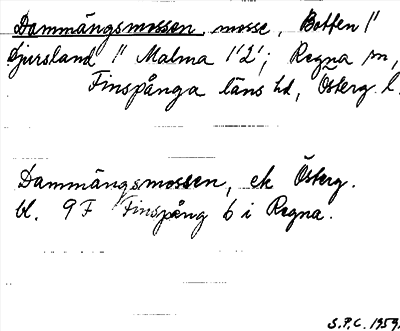 Dammängsmossen, mosse, Botten 1"
Djursland 1" Malma 1'2'; Regna sn,
Finspånga läns hd, Österg. l.
Dammängsmossen, ek Österg.
bl. 9F Finspång b i Regna.
S.P.C. 1959.